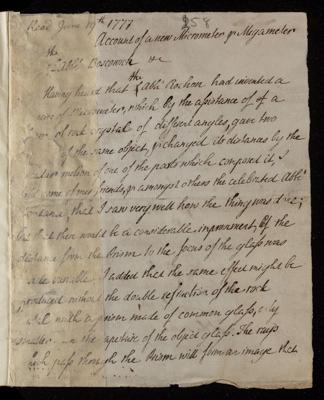 Read June 19th 1777
258
Account of a new Micrometer & Megameter
the
Abbé Boscovich
Having heard that the Abbé Rochon had invented a
of Micrometer, which by the assistance of a
of rock crystal of different angles, gave two
of the same object, & changed its distances by the
motion of one of the parts which composed it, I
some of my friends, & amongst others the celebrated Abbé
that I saw very well how the thing was
but that there would be a considerable improvement, if the
distance from the Prism to the focus of the glass was
variable. I added that the same effect might be
produced without the double refraction of the rock
with a prism made of common glass, only
smaller the aperture of the object glass. The rays
pass through the Prism will form an image that